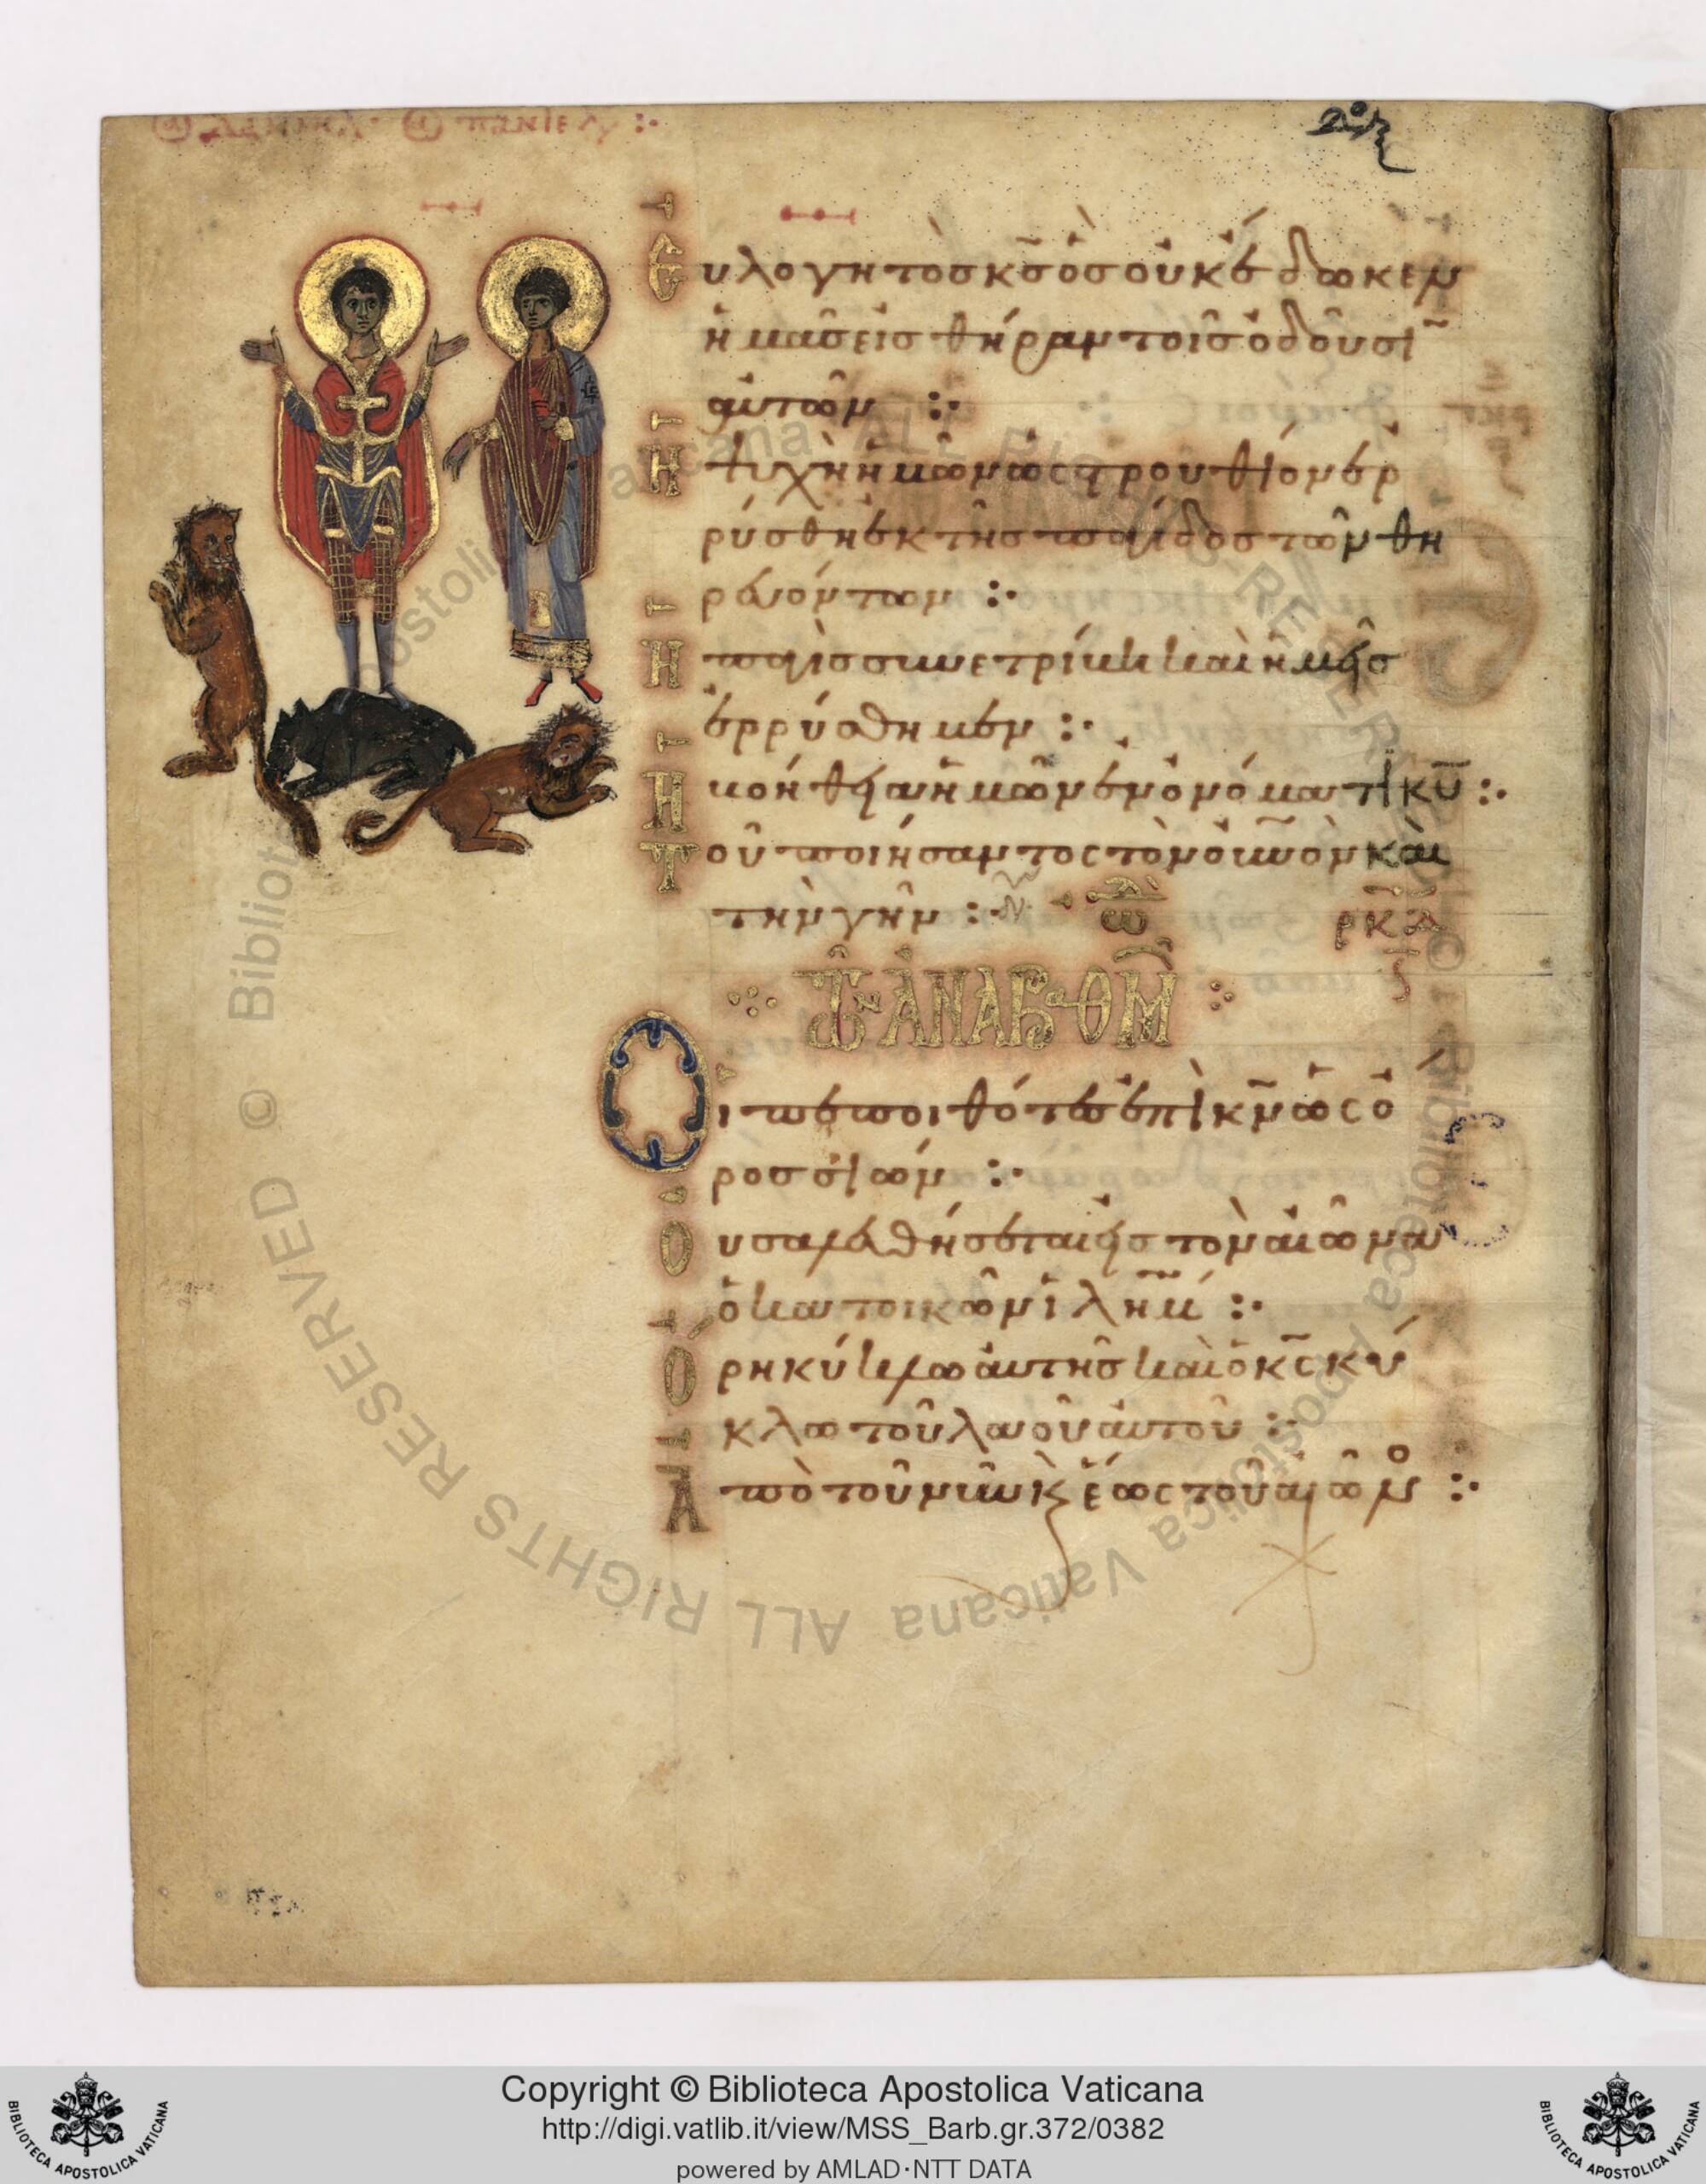 Εὐλογητὸσ κ̅σ̅ ὃσ οὐκ ἔδωκεν
ἡμᾶσ εἰσ θήραν τοῖσ ὀδοῦσῑ
αὐτῶν :·
Ἡ ψυχὴ ἡμῶν ὡς στρουθίον ἐρ
ρύσθη ἐκ τῆσ παγίδοσ τῶν θη
ρευόντων :·
Ἡ παγὶσ συνετρίβη καὶ ἡμεῖσ
ἐρρύσθημεν :·
Ἡ βοήθεια ἡμῶν ἐν ὀνόματι κ̅υ̅ :·
Τοῦ ποιήσαντος τὸν ο̅υ̅ν̅ο̅ν̅ καὶ
τὴν γῆν :· ὠ̣δὴ ρκδ
ὠ̣δὴ τῶν ἀναβαθμ
Οἱ πεποιθότεσ ἐπὶ κ̅ν̅ ὡς ὄ
ροσ σιών :·
Οὐ σαλευθήσεται εἰσ τὸν αἰῶνα
ὁ κατοικῶν ι̅λ̅η̅μ̅ :·
Ὄρη κύκλω αὐτῆσ καὶ ὁ κ̅ς̅ κύ
κλω τοῦ λαοῦ αὐτοῦ :·
Ἀπὸ τοῦ νῦν κ̀ ἕως τοῦ αἰῶνο :·
Copyright © Biblioteca Apostolica Vaticana
http://digi.vatlib.it/view/MSS_Barb.gr.372/0382
powered by AMLAD·NTT DATA
BIBLIOTECA APOSTOLICA VATICANA
BIBLIOTECA APOSTOLICA VATICANA